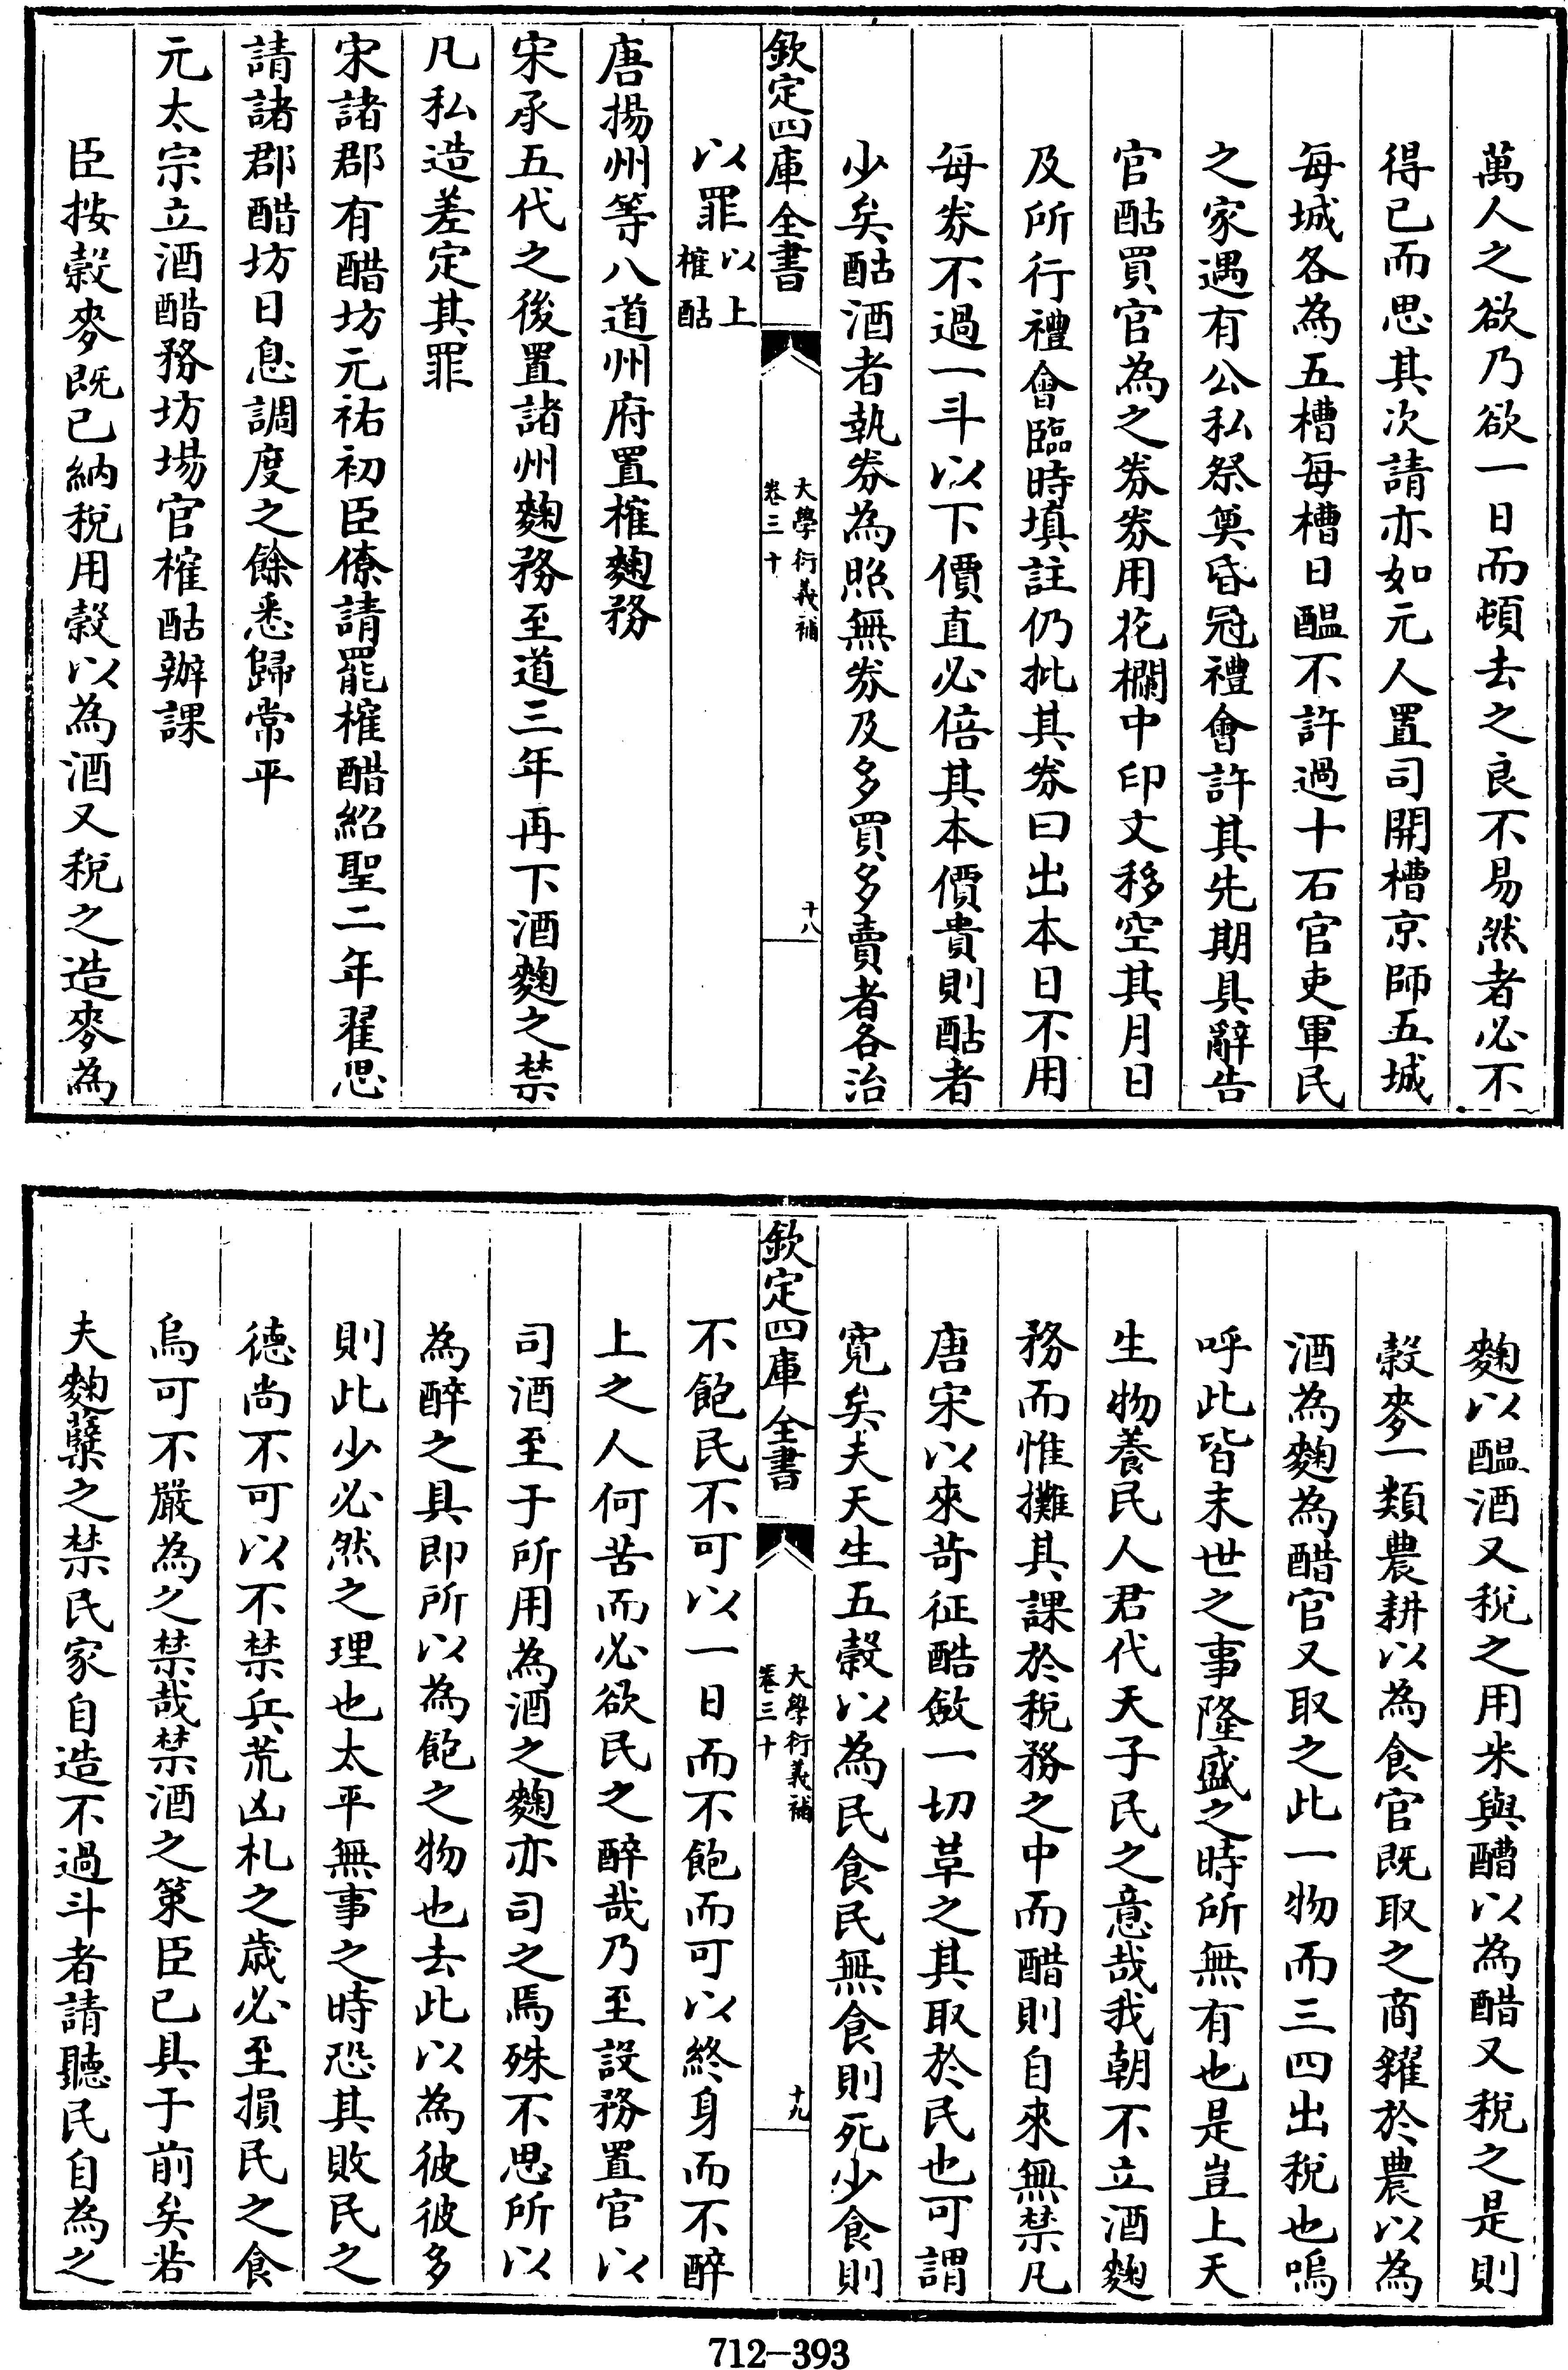 萬人之欲乃欲一日而頓去之良不易然者必不
得已而思其次請亦如元人置司開槽京師五城
每城各為五槽每槽日醖不許過十石官吏軍民
之家遇有公私祭奠昏冠禮會許其先期具辭告
官酤買官為之劵劵用花欄中印文移空其月日
及所行禮會臨時填註仍批其劵曰出本日不用
每劵不過一斗以下價直必倍其本價貴則酤者
少矣酤酒者執劵為照無劵及多買多賣者各治
欽定四庫全書
大學衍義補
卷三十
十八
以罪以上
榷酤
唐揚州等八道州府置榷麴務
宋承五代之後置諸州麴務至道三年再下酒麴之禁
凡私造差定其罪
宋諸郡有醋坊元祐初臣僚請罷榷醋紹聖二年翟思
請諸郡醋坊日息調度之餘悉歸常平
元太宗立酒醋務坊場官榷酤辦課
臣按榖麥既已納稅用榖以為酒又稅之造麥為
麴以醖酒又稅之用米與醩以為醋又稅之是則
榖麥一類農耕以為食官既取之商糴於農以為
酒為麴為醋官又取之此一物而三四出稅也嗚
呼此皆末世之事隆盛之時所無有也是豈上天
生物養民人君代天子民之意哉我朝不立酒麴
務而惟攤其課於稅務之中而醋則自來無禁凡
唐宋以來苛征酷斂一切革之其取於民也可謂
寛矣夫天生五榖以為民食民無食則死少食則
欽定四庫全書
大學衍義補
卷三十
十九
不飽民不可以一日而不飽而可以終身而不醉
上之人何苦而必欲民之醉哉乃至設務置官以
司酒至于所用為酒之麴亦司之焉殊不思所以
為醉之具即所以為飽之物也去此以為彼彼多
則此少必然之理也太平無事之時恐其敗民之
德尚不可以不禁兵荒凶札之歲必至損民之食
烏可不嚴為之禁哉禁酒之策臣已具于前矣若
夫麴糵之禁民家自造不過斗者請聽民自為之
712-393